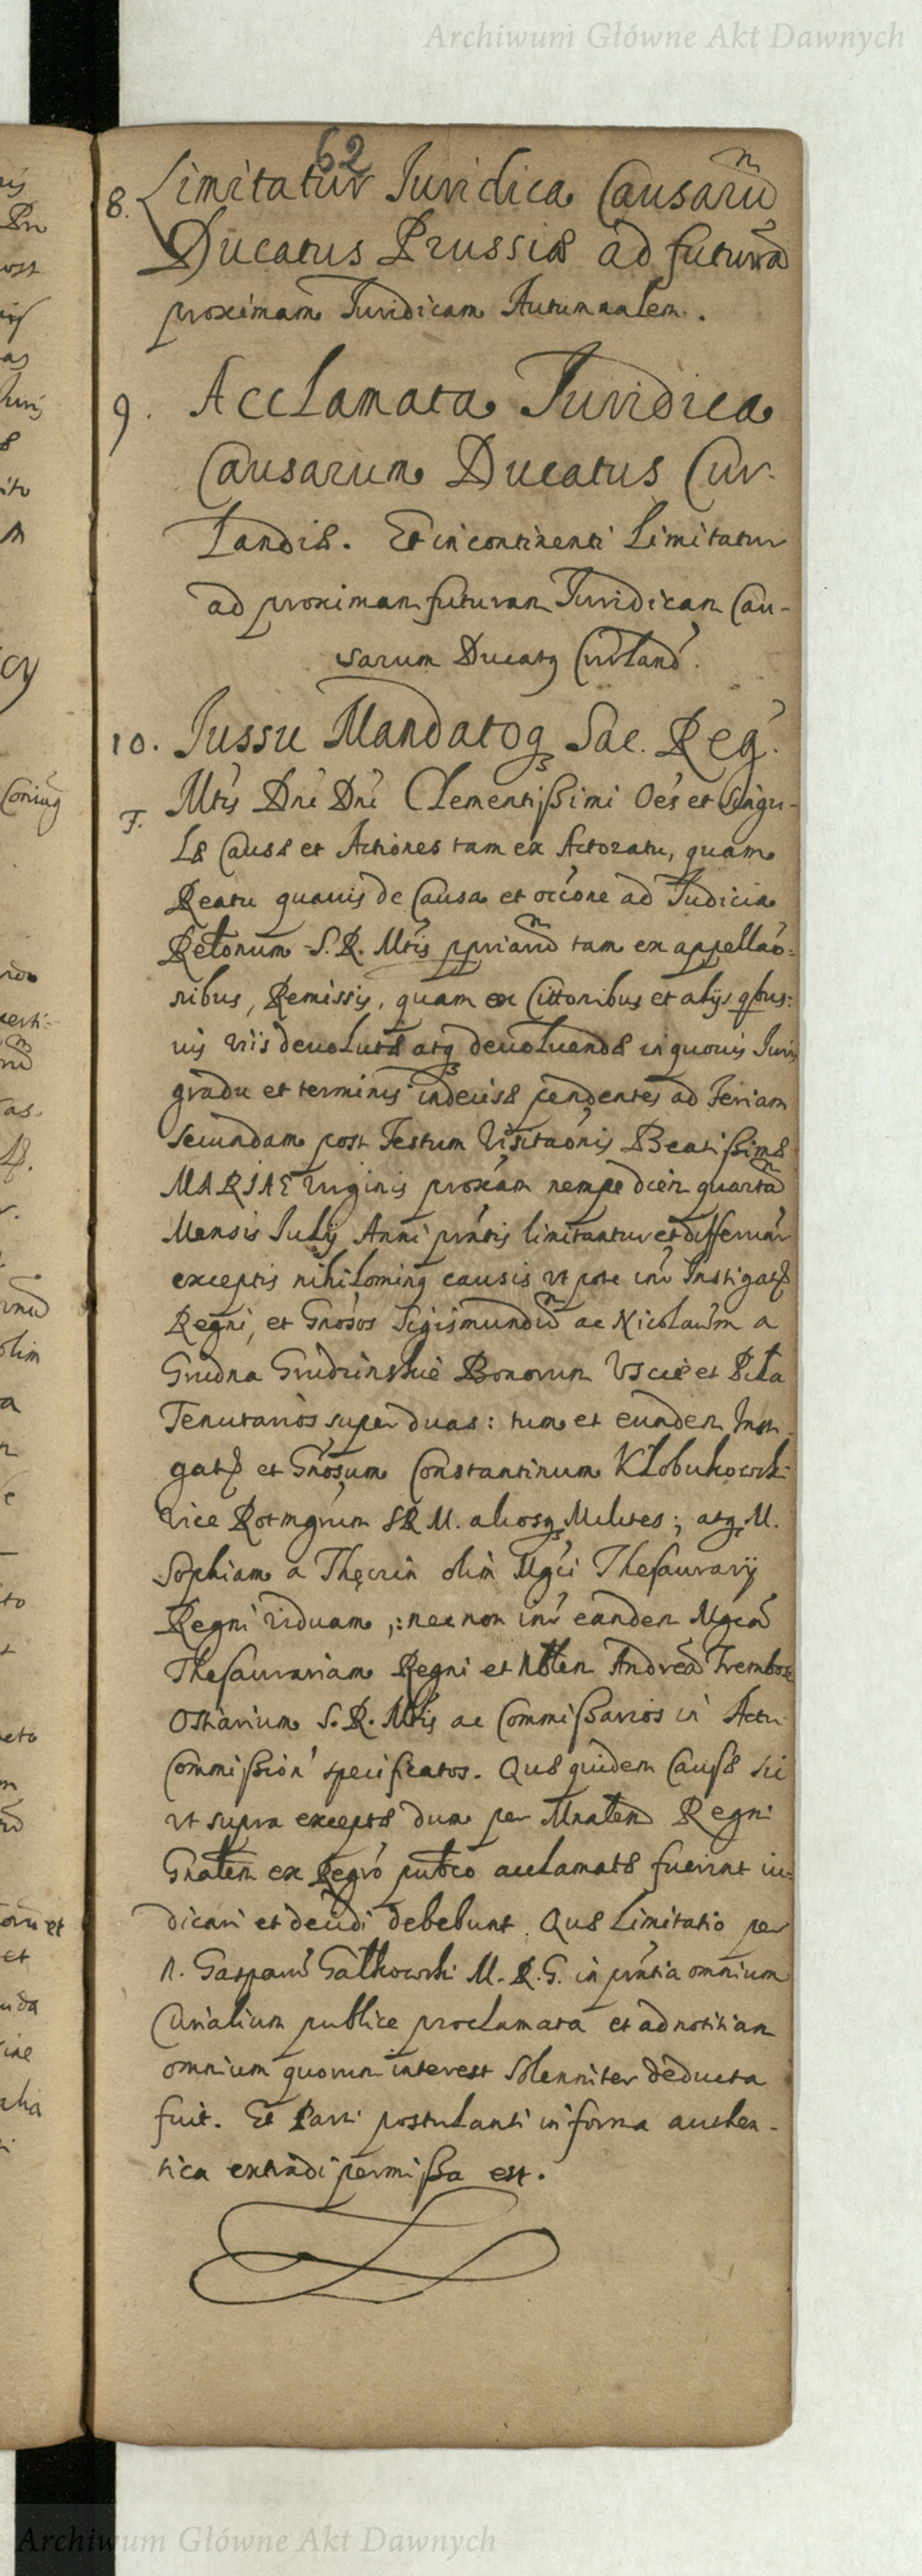 Archiwum Główne Akt Dawnych
62
8. Limitatur Iuridica Causarū
Ducatus Prussiæ ad futurā
proximam Iuridicam Autumnalem.
9. Acclamata Iuridica
Causarum Ducatus Cur-
landiæ. Et in continenti Limitatur
ad proximam futuram Iuridicam Cau-
sarum Ducatq Curland.
10. Jussu Mandatoq Sac. Reg.
Mtis Dni Dni Clementißimi Oēs et Singu-
F.
læ Causæ et Actiones tam ex Actoratu, quam
Reatu quavis de Causa et occōne ad Iudicia
Relonum S. R. Mtis ppriarū tam ex appellaō-
nibus, Remissis, quam ex Cittonibus et alijs qbus-
vis viis devolutæ atq devoluendæ in quovis Iuris
gradu et terminis indecisæ pendentes ad Feriam
Secundam post Festum Visitaōnis Beatißimæ
MARIAE Virginis proxām nempe diem quartā
Mensis Iulij Anni pn̄tis limitantur et differunr
exceptis nihilominq causis ut pote inr Instigat
Regni, et Gnosos Sigismundū ac Nicolaum a
Grudna Grudzinskie Bonorum Uscie et Piła
Tenutarios super duas: tum et eundem Insti-
gat et Gnosum Constantinum Kłobukowski
Vice Rotmgrum SRM. aliosq Milites; atq M.
Sophiam a Thęczin olim Mgci Thesaurarij
Regni viduam,: nec non inr eandem Mgcā
Thesaurariam Regni et Nblem Andreā
Ostiarium S. R. Mtis ac Commißarios in Actu
Commißion specificatos. Quæ quidem Causæ sic
ut supra exceptæ dum per Mnalem Regni
Gnalem ex Regro publco acclamatæ fuerint iu-
dicari et decidi debebunt. Quæ Limitatio per
N. Gasparū Gałkowski M. R. G. in pn̄tia omnium
Curialium publice proclamata et ad notitiam
omnium quorum interest solenniter deducta
fuit. Et Parti postulanti in forma authen-
tica extradi permißa est.
Archiwum Główne Akt Dawnych